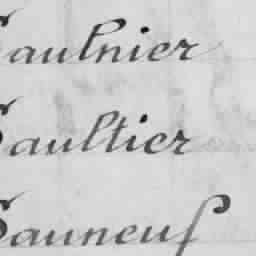 Saulnier
Saultier
Sauneuf